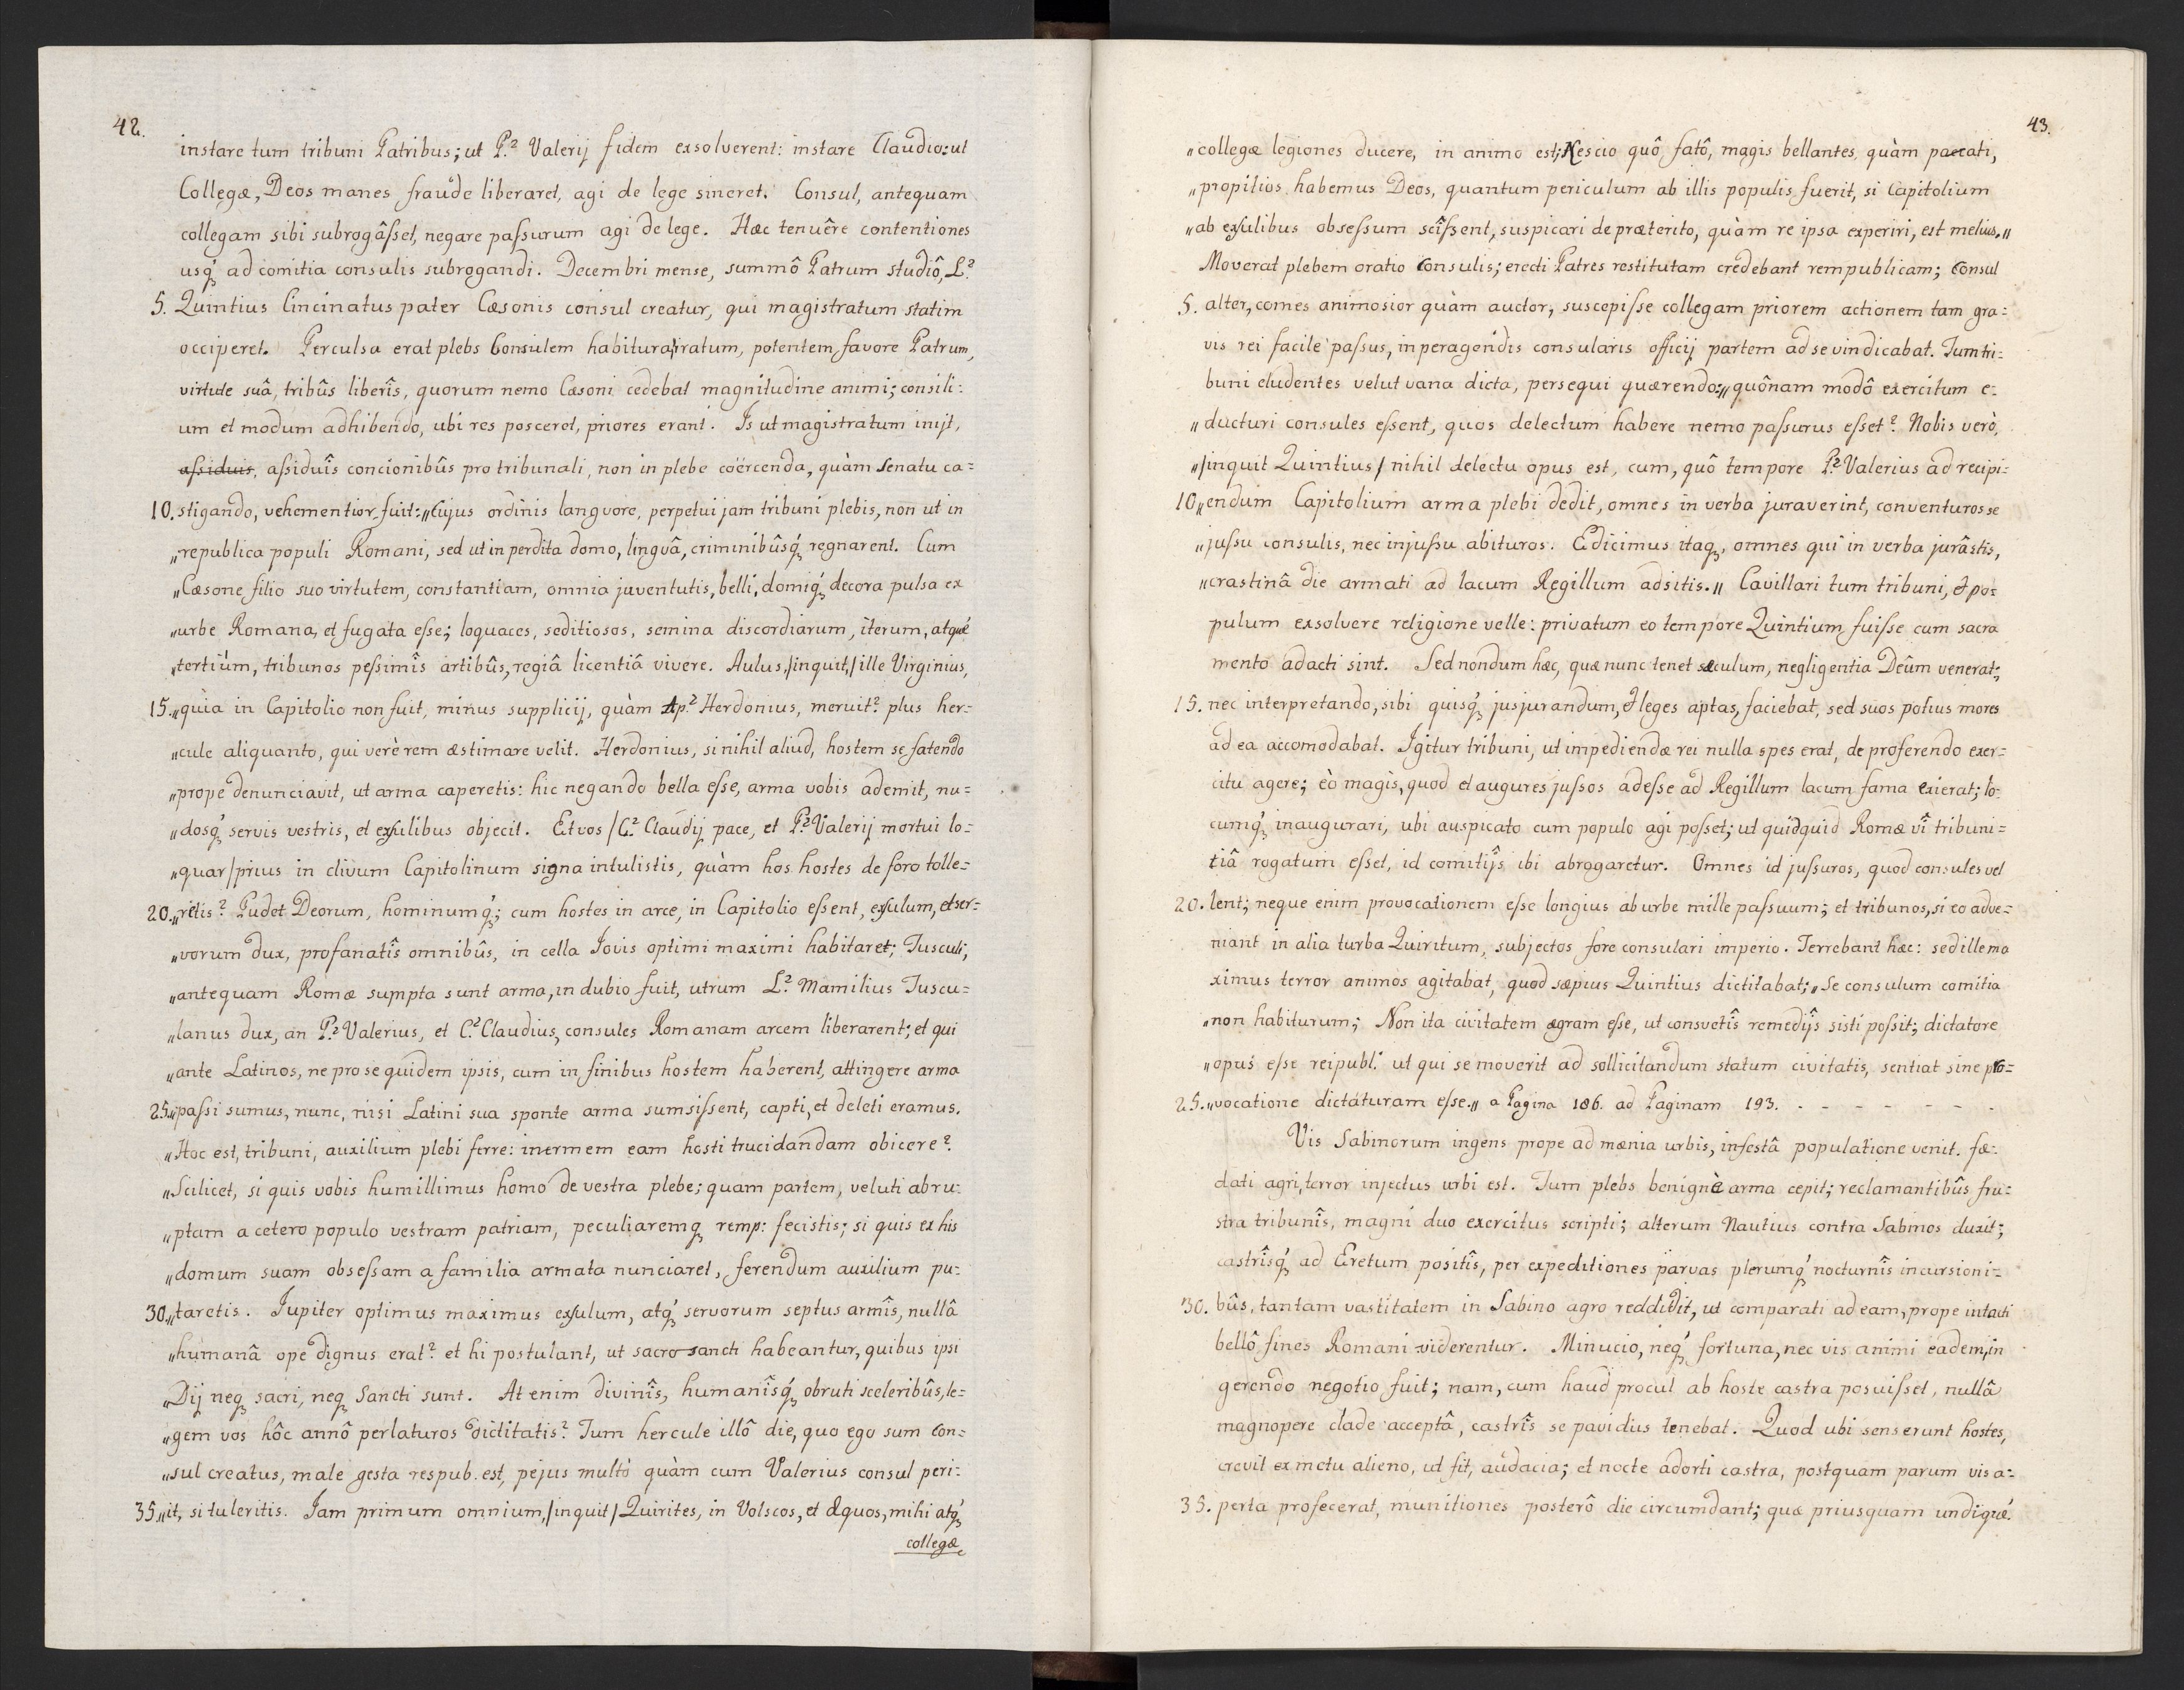 42.
instare tum tribuni Patribus; ut P.² Valerij fidem exsolverent: instare Claudio: ut
Collegæ, Deos manes fraude liberaret, agi de lege sineret. Consul, antequam
collegam sibi subrogâſset, negare paſsurum agi de lege. Hæc tenuêre contentiones
usq́ꝫ ad comitia consulis subrogandi. Decembri mense, summô Patrum studiô, L.²
5. Quintius Cincinatus pater Cæsonis consul creatur, qui magistratum statim
occiperet. Perculsa erat plebs Consulem habitura iratum, potentem favore Patrum,
virtute suâ, tribûs liberîs, quorum nemo Cæsoni cedebat magnitudine animi; consili=
um et modum adhibendo, ubi res posceret, priores erant. Is ut magistratum inijt,
aſsiduis, aſsiduîs concionibûs pro tribunali, non in plebe coërcenda, quàm Senatu ca=
10. stigando, vehementior fuit: „Cujus ordinis langvore, perpetui jam tribuni plebis, non ut in
„republica populi Romani, sed ut in perdita domo, linguâ, criminibûsq́ꝫ regnarent. Cum
„Cæsone filio suo virtutem, constantiam, omnia juventutis, belli, domiq́ꝫ decora pulsa ex
„urbe Romana, et fugata eſse; loquaces, seditiosos, semina discordiarum, iterum, atqué
„tertiùm, tribunos peſsimîs artibûs, regiâ licentiâ vivere. Aulus, /inquit,/ ille Virginius,
15. „quia in Capitolio non fuit, minus supplicij, quàm Ap.² Herdonius, meruit? plus her=
„cule aliquanto, qui verè rem æstimare velit. Herdonius, si nihil aliud, hostem se fatendo
„prope denunciavit, ut arma caperetis: hic negando bella eſse, arma vobis ademit, nu=
„dosq́ꝫ servis vestris, et exſulibus objecit. Et vos /C.² Claudij pace, et P.² Valerij mortui lo=
„quar/ prius in clivum Capitolinum signa intulistis, quàm hos hostes de foro tolle=
20. „retis? Pudet Deorum, hominumq́ꝫ; cum hostes in arce, in Capitolio eſsent, exſulum, et ser=
„vorum dux, profanatîs omnibûs, in cella Jovis optimi maximi habitaret; Tusculi,
„antequam Romæ sumpta sunt arma, in dubio fuit, utrum L.² Mamilius Tuscu=
„lanus dux, an P.² Valerius, et C.² Claudius, consules Romanam arcem liberarent; et qui
„ante Latinos, ne pro se quidem ipsis, cum in finibus hostem haberent, attingere arma
25. „paſsi sumus, nunc, nisi Latini sua sponte arma sumsiſsent, capti, et deleti eramus.
„Hoc est, tribuni, auxilium plebi ferre: inermem eam hosti trucidandam obicere?
„Scilicet, si quis vobis humillimus homo de vestra plebe; quam partem, veluti abru=
„ptam a cetero populo vestram patriam, peculiaremqꝫ remp: fecistis; si quis ex his
„domum suam obseſsam a familia armata nunciaret, ferendum auxilium pu=
30. „taretis. Jupiter optimus maximus exſulum, atq́ꝫ servorum septus armîs, nullâ
„humanâ ope dignus erat? et hi postulant, ut sacrosancti habeantur, quibus ipsi
„Dij neqꝫ sacri, neqꝫ Sancti sunt. At enim divinîs, humanîsq́ꝫ obruti sceleribûs, le=
„gem vos hôc annô perlaturos dictitatis? Tum hercule illô die, quo ego sum Con=
„sul creatus, male gesta respub. est, pejus multò quàm cum Valerius consul peri=
35. „it, si tuleritis. Jam primum omnium, /inquit/ Quirites, in Volscos, et Æquos, mihi atq́ꝫ
collegæ
43.
„collegæ legiones ducere, in animo est; Nescio quô fatô, magis bellantes, quàm pacati,
„propitios habemus Deos, quantum periculum ab illis populis fuerit, si Capitolium
„ab exſulibus obseſsum scîſsent, suspicari de præterito, quàm re ipsa experiri, est melius.„
Moverat plebem oratio Consulis; erecti Patres restitutam credebant rempublicam; Consul
5. alter, comes animosior quàm auctor, suscepiſse collegam priorem actionem tam gra=
vis rei facile paſsus, in peragendis consularis officij partem ad se vindicabat. Tum tri=
buni eludentes velut vana dicta, persequi quærendo: „quônam modô exercitum e=
„ducturi consules eſsent, quos delectum habere nemo paſsurus eſset? Nobis verò,
„/inquit Quintius/ nihil delectu opus est, cum, quô tempore P.² Valerius ad recipi=
10. „endum Capitolium arma plebi dedit, omnes in verba juraverint, conventuros se
„juſsu consulis, nec injuſsu abituros. Edicimus itaqꝫ, omnes qui in verba jurâstis,
„crastinâ die armati ad lacum Regillum adsitis.„ Cavillari tum tribuni, et po=
pulum exsolvere religione velle: privatum eo tempore Quintium fuiſse cum sacra
mento adacti sint. Sed nondum hæc, quæ nunc tenet sæculum, negligentia Deûm venerat;
15. nec interpretando, sibi quisq́ꝫ jusjurandum, et leges aptas, faciebat, sed suos potius mores
ad ea accomodabat. Igitur tribuni, ut impediendæ rei nulla spes erat, de proferendo exer=
citu agere; eò magis, quod et augures juſsos adeſse ad Regillum lacum fama exierat; lo=
cumq́ꝫ inaugurari, ubi auspicato cum populo agi poſset; ut quidquid Romæ vî tribuni=
tiâ rogatum eſset, id comitijs ibi abrogaretur. Omnes id juſsuros, quod consules vel
20. lent; neque enim provocationem eſse longius ab urbe mille paſsuum; et tribunos, si eo adve=
niant in alia turba Quiritum, subjectos fore consulari imperio. Terrebant hæc: sed ille ma
ximus terror animos agitabat, quod sæpius Quintius dictitabat; „Se consulum comitia
„non habiturum; Non ita civitatem ægram eſse, ut consvetîs remedijs sisti poſsit; dictatore
„opus eſse reipubl. ut qui se moverit ad sollicitandum statum civitatis, sentiat sine pro=
25. „vocatione dictaturam eſse.„ a Pagina 186. ad Paginam 193. . - - - - - - .
Vis Sabinorum ingens prope ad mænia urbis, infestâ populatione venit. fæ=
dati agri, terror injectus urbi est. Tum plebs benignè arma cepit; reclamantibûs fru=
stra tribunîs, magni duo exercitus scripti; alterum Nautius contra Sabinos duxit;
castrîsq́ꝫ ad Eretum positîs, per expeditiones parvas plerumq́ꝫ nocturnîs incursioni=
30. bûs, tantam vastitatem in Sabino agro reddidit, ut comparati ad eam, prope intacti
bellô fines Romani viderentur. Minucio, neq́ꝫ fortuna, nec vis animi eadem, in
gerendo negotio fuit; nam, cum haud procul ab hoste castra posuiſset, nullâ
magnopere clade acceptâ, castrîs se pavidus tenebat. Quod ubi senserunt hostes,
crevit ex metu alieno, ut fit, audacia; et nocte adorti castra, postquam parum vis a=
35. perta profecerat, munitiones posterô die circumdant; quæ priusquam undiqué